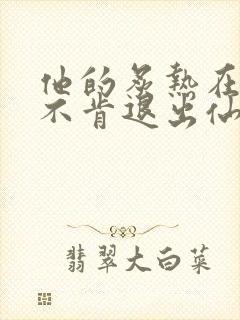 他的炙热在
不肯退出仙
翡翠大白菜